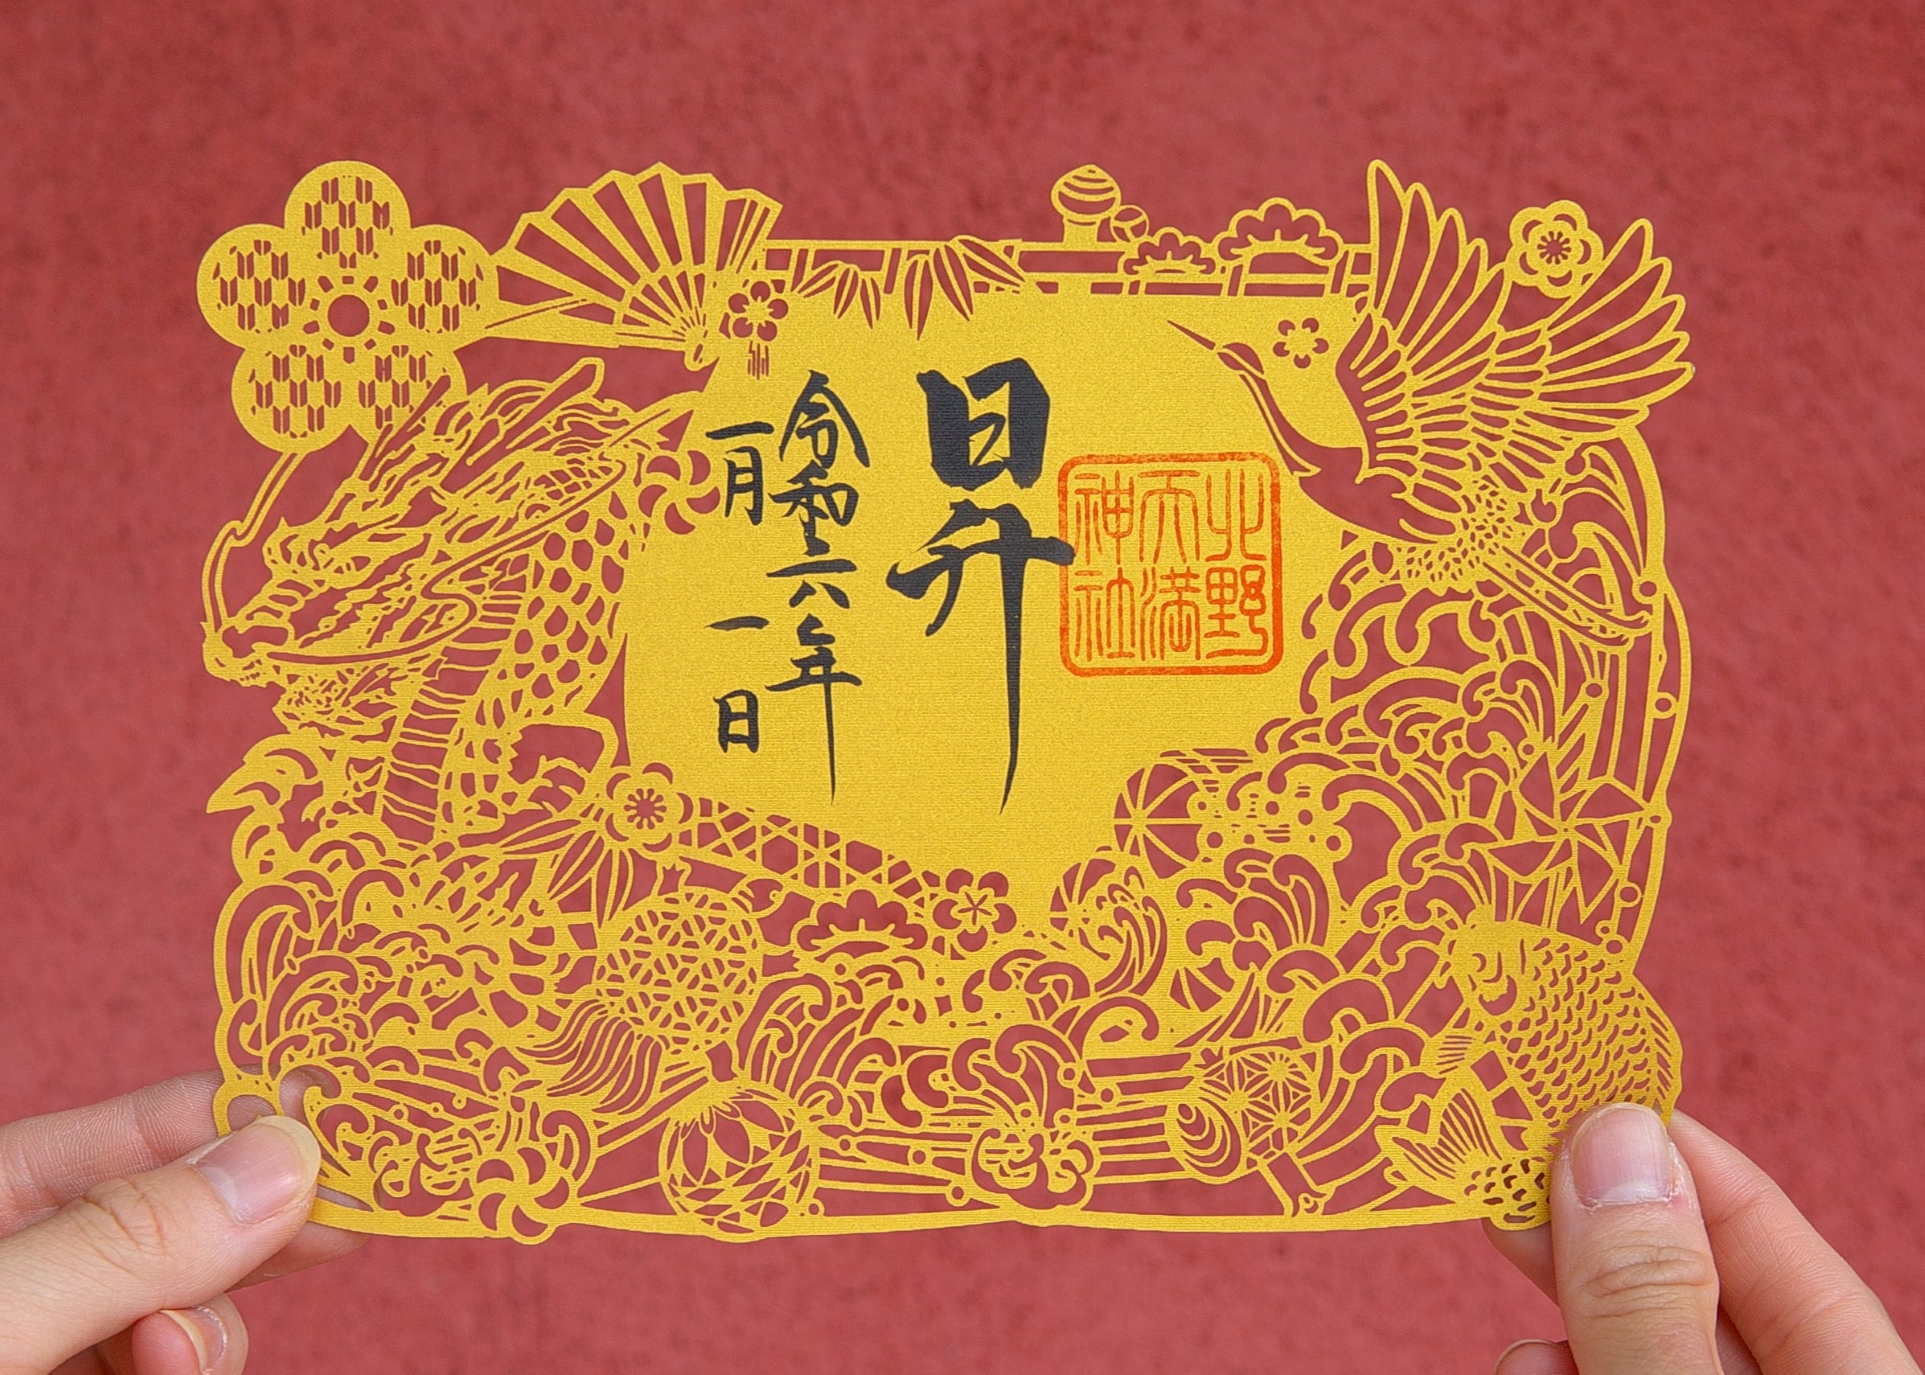 北野
天満
神社
日升
令和六年
一月一日